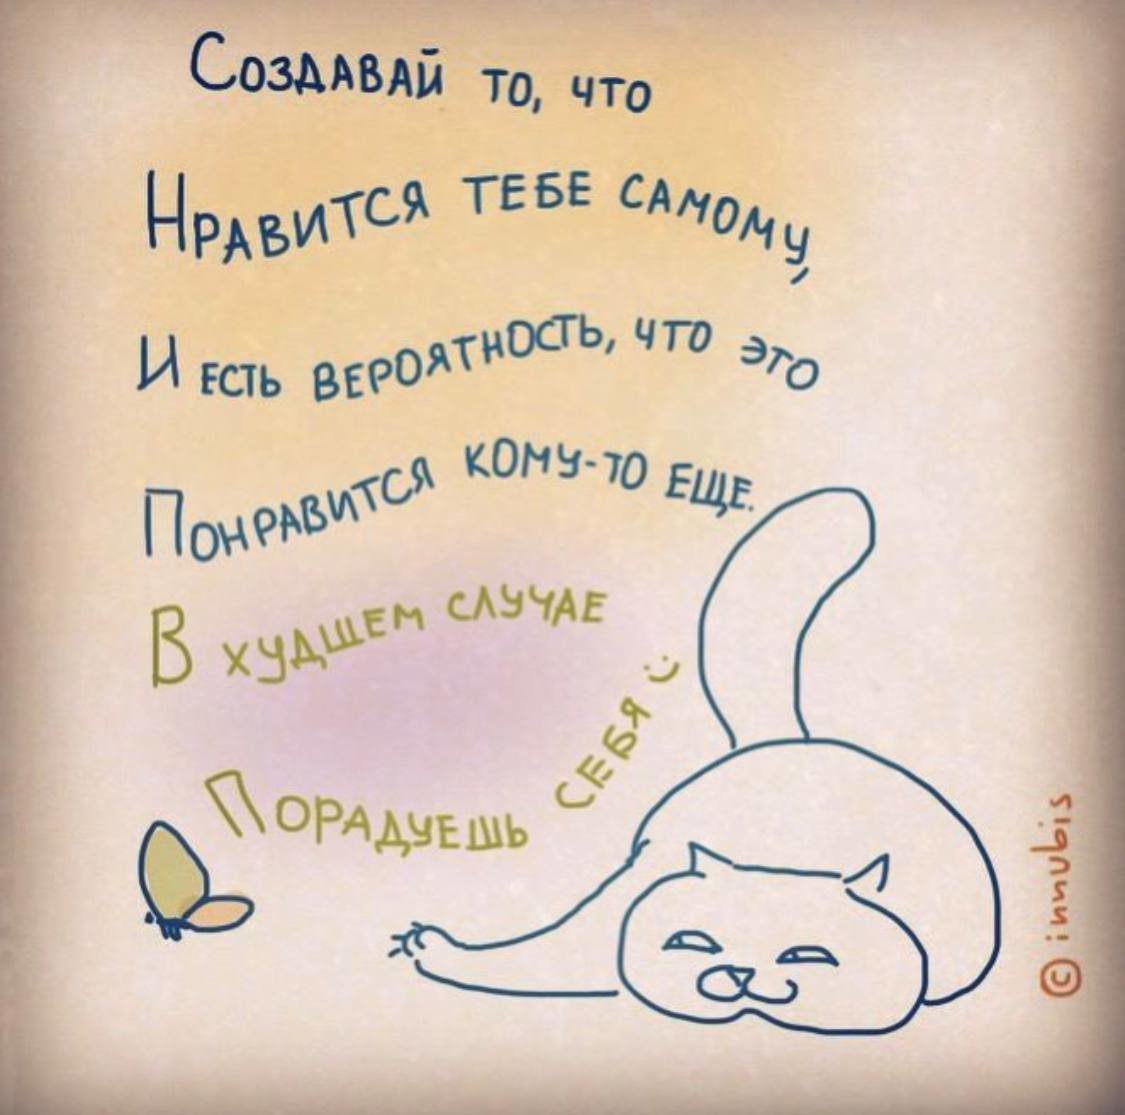 Создавай то, что
Нравится тебе самому,
И есть вероятность, что это
Понравится кому-то еще.
В худшем случае
Порадуешь себя :)
© innubis